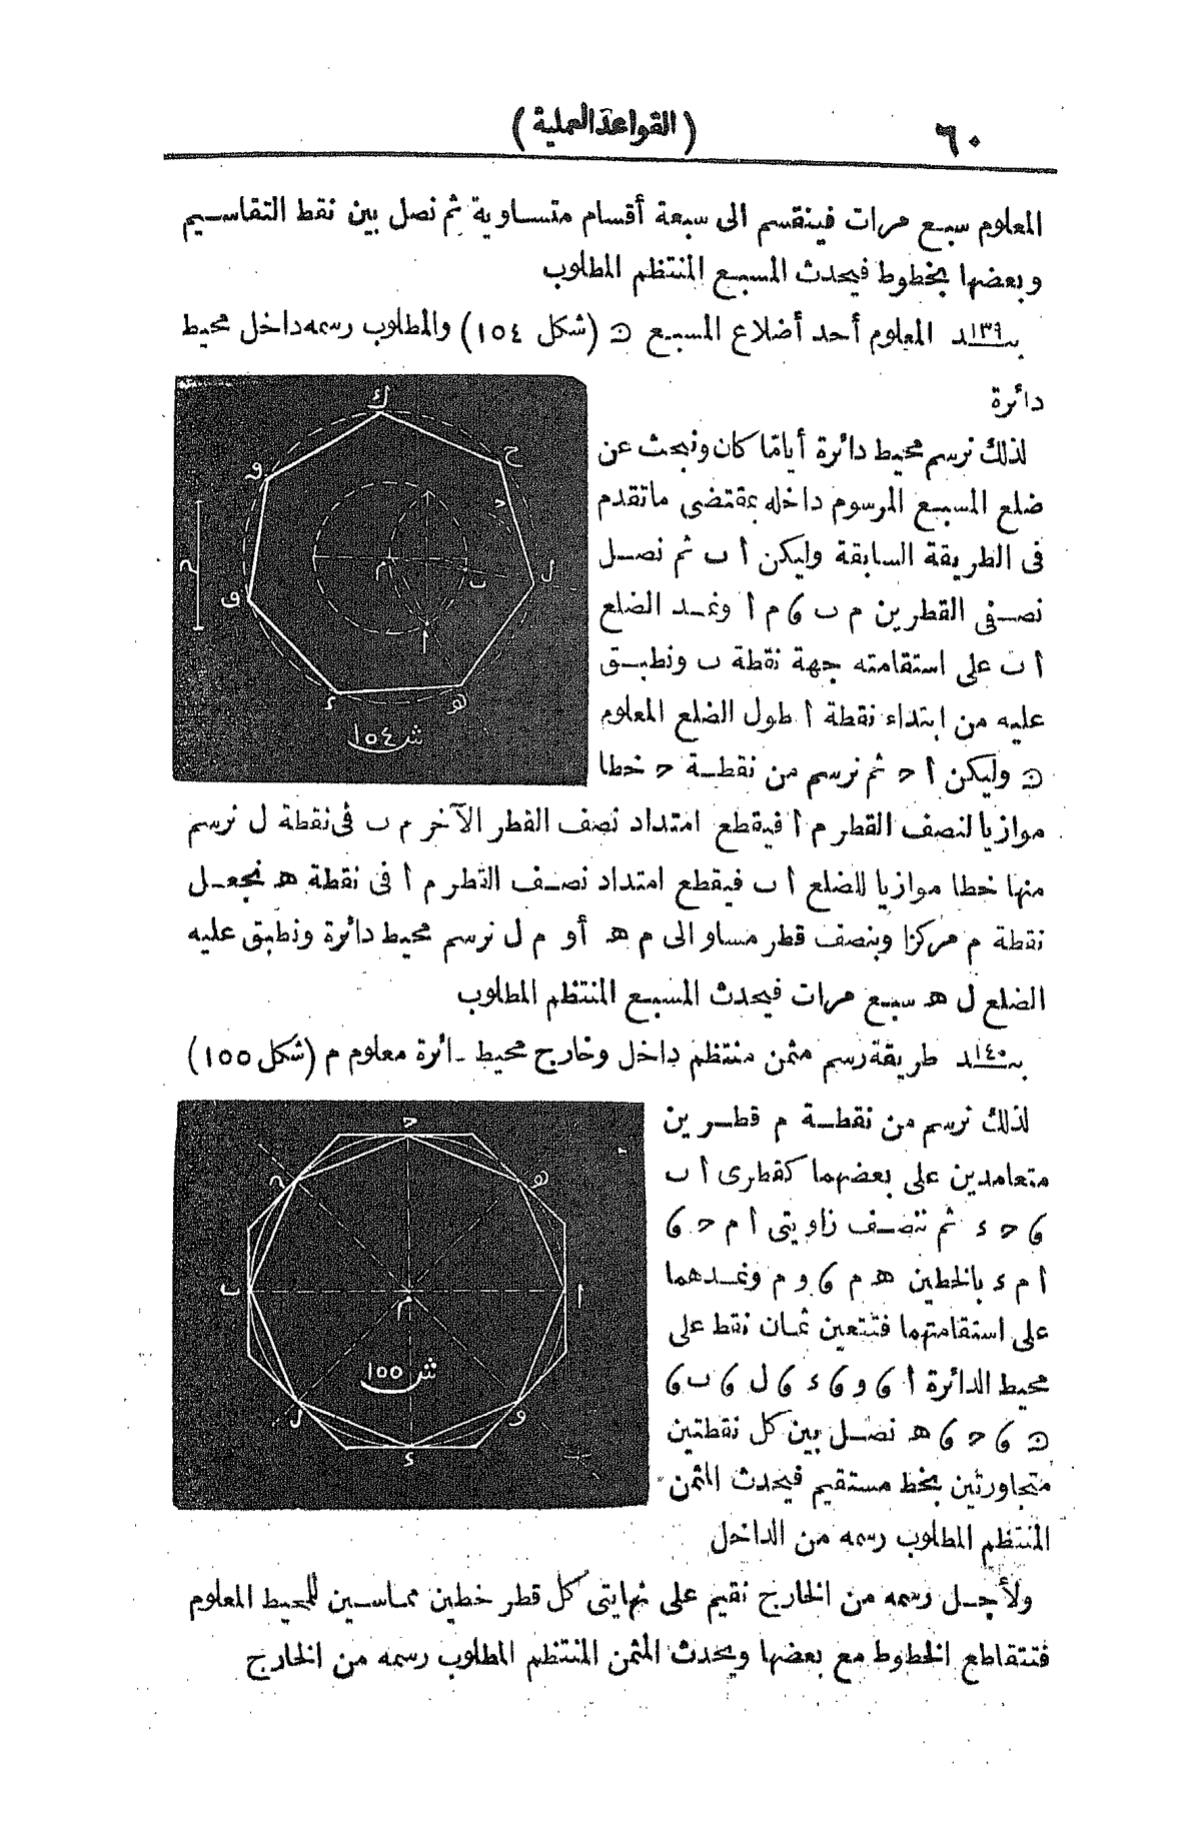 ٦٠
(القواعد العملية)
المعلوم سبع مرات فينقسم الى سبعة أقسام متساوية ثم نصل بين نقط التقاسيم
وبعضها بخطوط فيحدث المسبع المنتظم المطلوب
بند ١٣٩ المعلوم أحد أضلاع المسبع ن (شكل ١٥٤) والمطلوب رسمه داخل محيط
دائرة
لذلك نرسم محيط دائرة أيا ما كان ونبحث عن
ضلع المسبع المرسوم داخله بمقتضى ماتقدم
فى الطريقة السابقة وليكن أ ب ثم نصل
نصفى القطرين م ب و م أ ونمد الضلع
أ ب على استقامته جهة نقطة ب ونطبق
عليه من ابتداء نقطة أ طول الضلع المعلوم
ن وليكن أ ح ثم نرسم من نقطة ح خطا
موازيا لنصف القطر م أ فيقطع امتداد نصف القطر الآخر م ب فى نقطة ل نرسم
منها خطا موازيا للضلع أ ب فيقطع امتداد نصف القطر م أ فى نقطة هـ نجعل
نقطة م مركزا وبنصف قطر مساو الى م هـ أو م ل نرسم محيط دائرة ونطبق عليه
الضلع ل هـ سبع مرات فيحدث المسبع المنتظم المطلوب
ش ١٥٤
بند ١٤٠ طريقة رسم مثمن منتظم داخل وخارج محيط ـائرة معلوم م (شكل ١٥٥)
لذلك نرسم من نقطة م قطرين
متعامدين على بعضهما كقطرى أ ب
و ح ء ثم ننصف زاويتى أ م ح و
أ م ء بالخطين هـ م و و م ونمدهما
على استقامتهما فتتعين ثمان نقط على
محيط الدائرة أ و و و ء و ل و ب و
ن و ح و هـ نصل بين كل نقطتين
متجاورتين بخط مستقيم فيحدث المثمن
المنتظم المطلوب رسمه من الداخل
ش ١٥٥
ولأجل رسمه من الخارج نقيم على نهايتى كل قطر خطين مماسين للمحيط المعلوم
فتتقاطع الخطوط مع بعضها ويحدث المثمن المنتظم المطلوب رسمه من الخارج